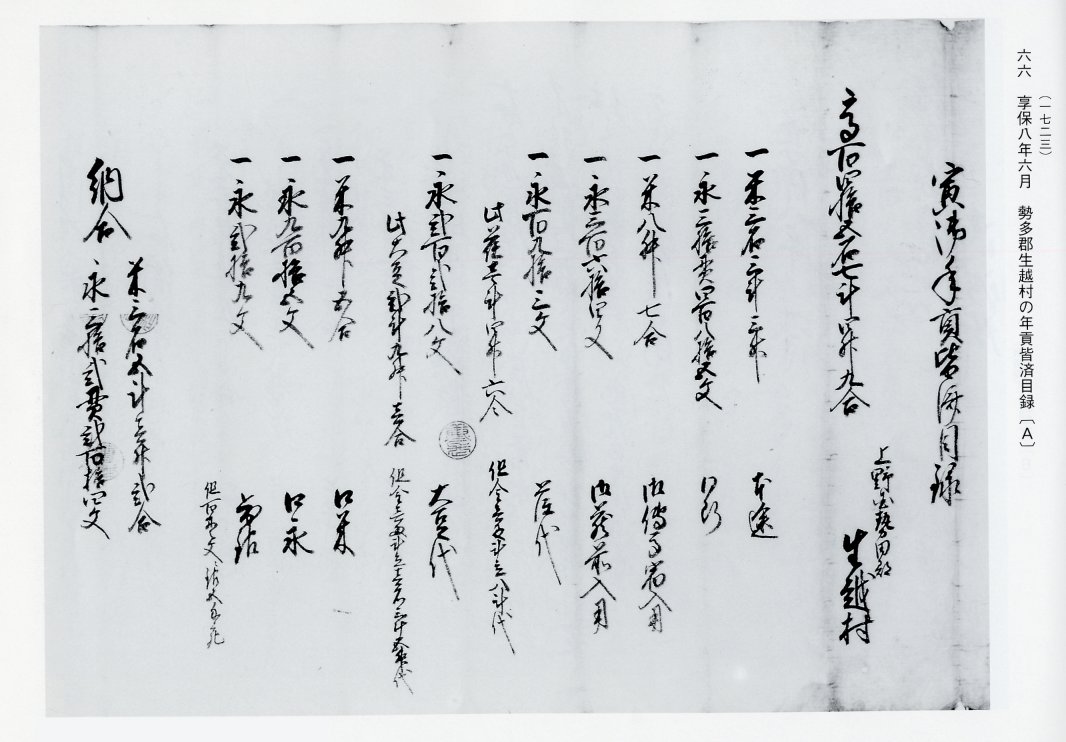 六六 享保八年六月 勢多郡生越村の年貢皆済目録〔A〕
(一七二三)
寅御年貢皆済目録
上野国勢田郡
生越村
高百四拾五石七斗四升九合
一米三石三斗三升 本途
一永三拾貫四百八拾五文 同断
一米八升七合 御伝馬宿入用
一永三百六拾四文 御蔵前入用
一永百九拾三文 荏代
此荏壱斗四升六合
一永弐百弐拾八文 大豆代
此大豆弐斗九升壱合
一米九升五合 口米
一永九百拾五文 口永
一永弐拾九文
納合
米三石五斗壱升弐合
永三拾弐貫弐百拾四文